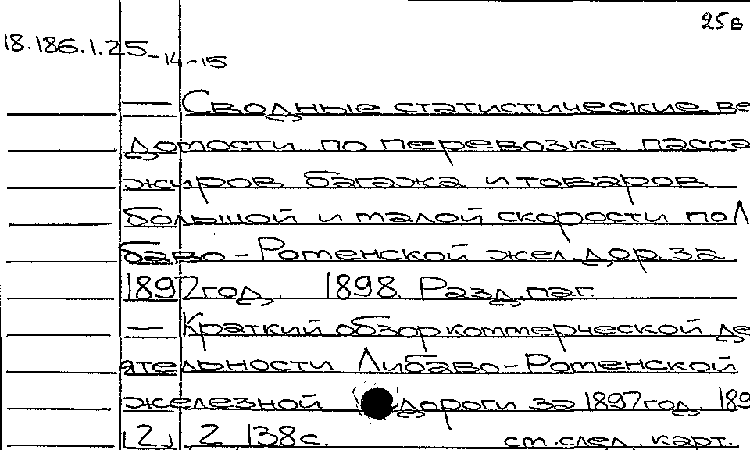 25в
18.186.1.25-14-15
— Сводные статистические ве
домости по перевозке пасса
жиров багажа и товаров
большой и малой скорости по Л
баво-Роменской жел. дор. за
1897 год, 1898. Разд. паг.
— Краткий обзор коммерческой де
ятельности Либаво-Роменской
железной дороги за 1897 год, 189
[2], 2 138 с. см. след. карт.